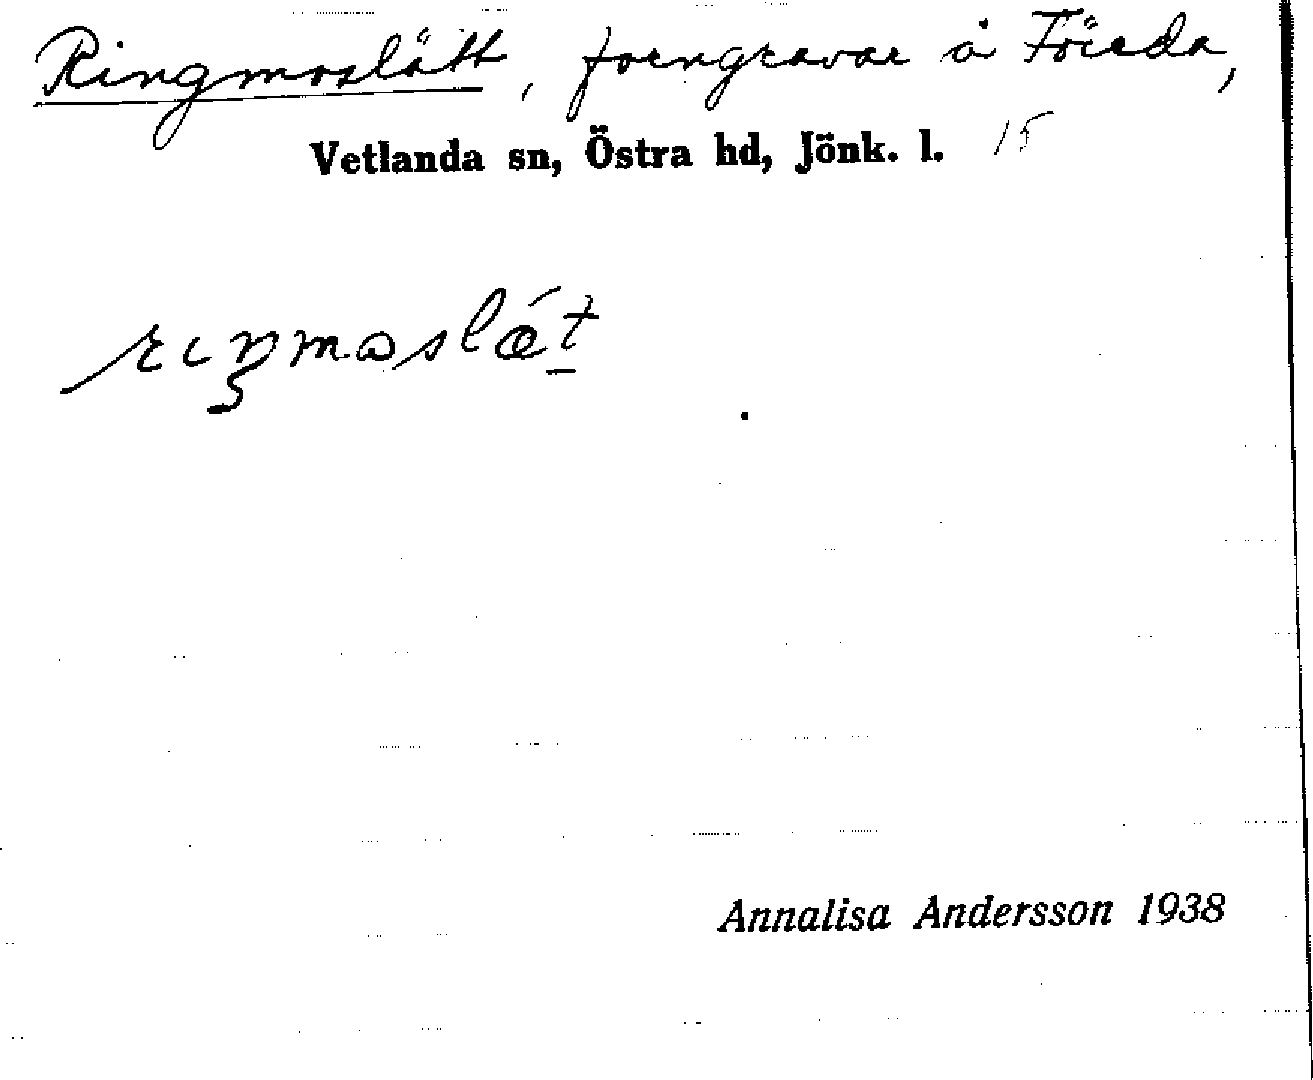 Ringmoslätt, forngravar å Föreda,
Vetlanda sn, Östra hd, Jönk. l. 15
rıŋmoslǽt
Annalisa Andersson 1938